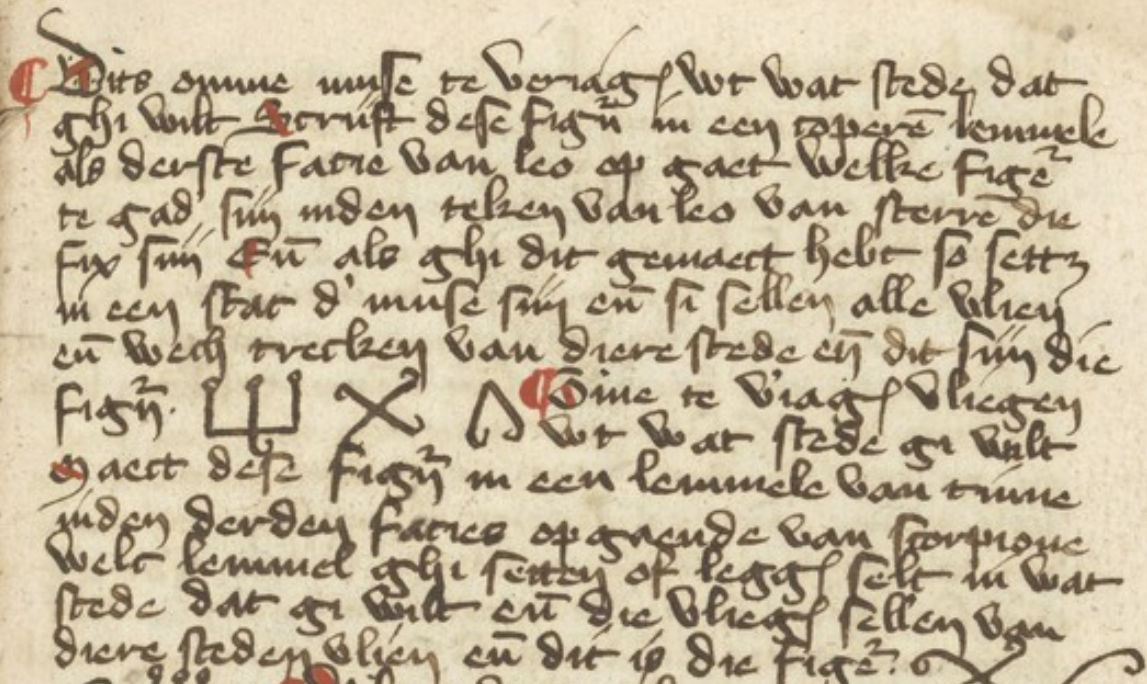 Dits omme muse te veriag̃ wt wat stede dat
ghi wilt Scrijft dese figur̃ in een coperē lemmele
als derste facie van leo op gaet welke figẽ
te gad' sijn inden teken van leo van sterrē die
fix sijn Eñ als ghi dit gemaect hebt so settz
in een stat d' muse sijn eñ si sellen alle vlien
eñ wech trecken van diere stede eñ dit sijn die
figur̃. Omme te v'iag̃ vliegen
wt wat stede gi wilt
Maect dese figur̃ in een lemmele van tinne
inden derden facies opgaende van scorpione
welc lemmel ghi setten of legg̃ selt in wat
stede dat gi wilt eñ die vlieg̃ sellen van
diere steden vlien eñ dit is die figẽ.